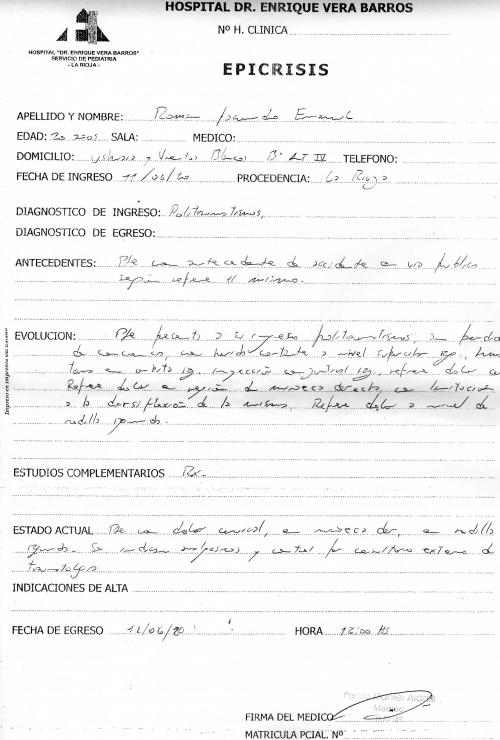 HOSPITAL DR. ENRIQUE VERA BARROS
Nº H. CLINICA
HOSPITAL "DR. ENRIQUE VERA BARROS"
SERVICIO DE PEDIATRIA
- LA RIOJA -
EPICRISIS
APELLIDO Y NOMBRE: Roman
EDAD: 20 años SALA: MEDICO:
DOMICILIO: y Bº TELEFONO:
FECHA DE INGRESO 11/06/20 PROCEDENCIA: La Rioja
DIAGNOSTICO DE INGRESO: Politraumatismos,
DIAGNOSTICO DE EGRESO:
ANTECEDENTES: Pte con antecedente de accidente en via publica
según refiere el mismo.
EVOLUCION: Pte presenta a su ingreso politraumatismos, sin perdida
de conciencia, con herida cortante a nivel superciliar izq.,
en orbita izq. inyección conjuntival izq., refiere dolor
Refiere dolor en región de muñeca derecha, con limitacion
a la dorsiflexión de la misma. Refiere dolor a nivel de
rodilla izquierda.
ESTUDIOS COMPLEMENTARIOS Rx.
ESTADO ACTUAL Pte con dolor cervical, en muñeca der, en rodilla
izquierda. Se indican analgesicos y control por consultorio externo de
traumatologia
INDICACIONES DE ALTA
FECHA DE EGRESO 12/06/20 HORA 12:00 Hs
Medico
FIRMA DEL MEDICO
MATRICULA PCIAL. Nº